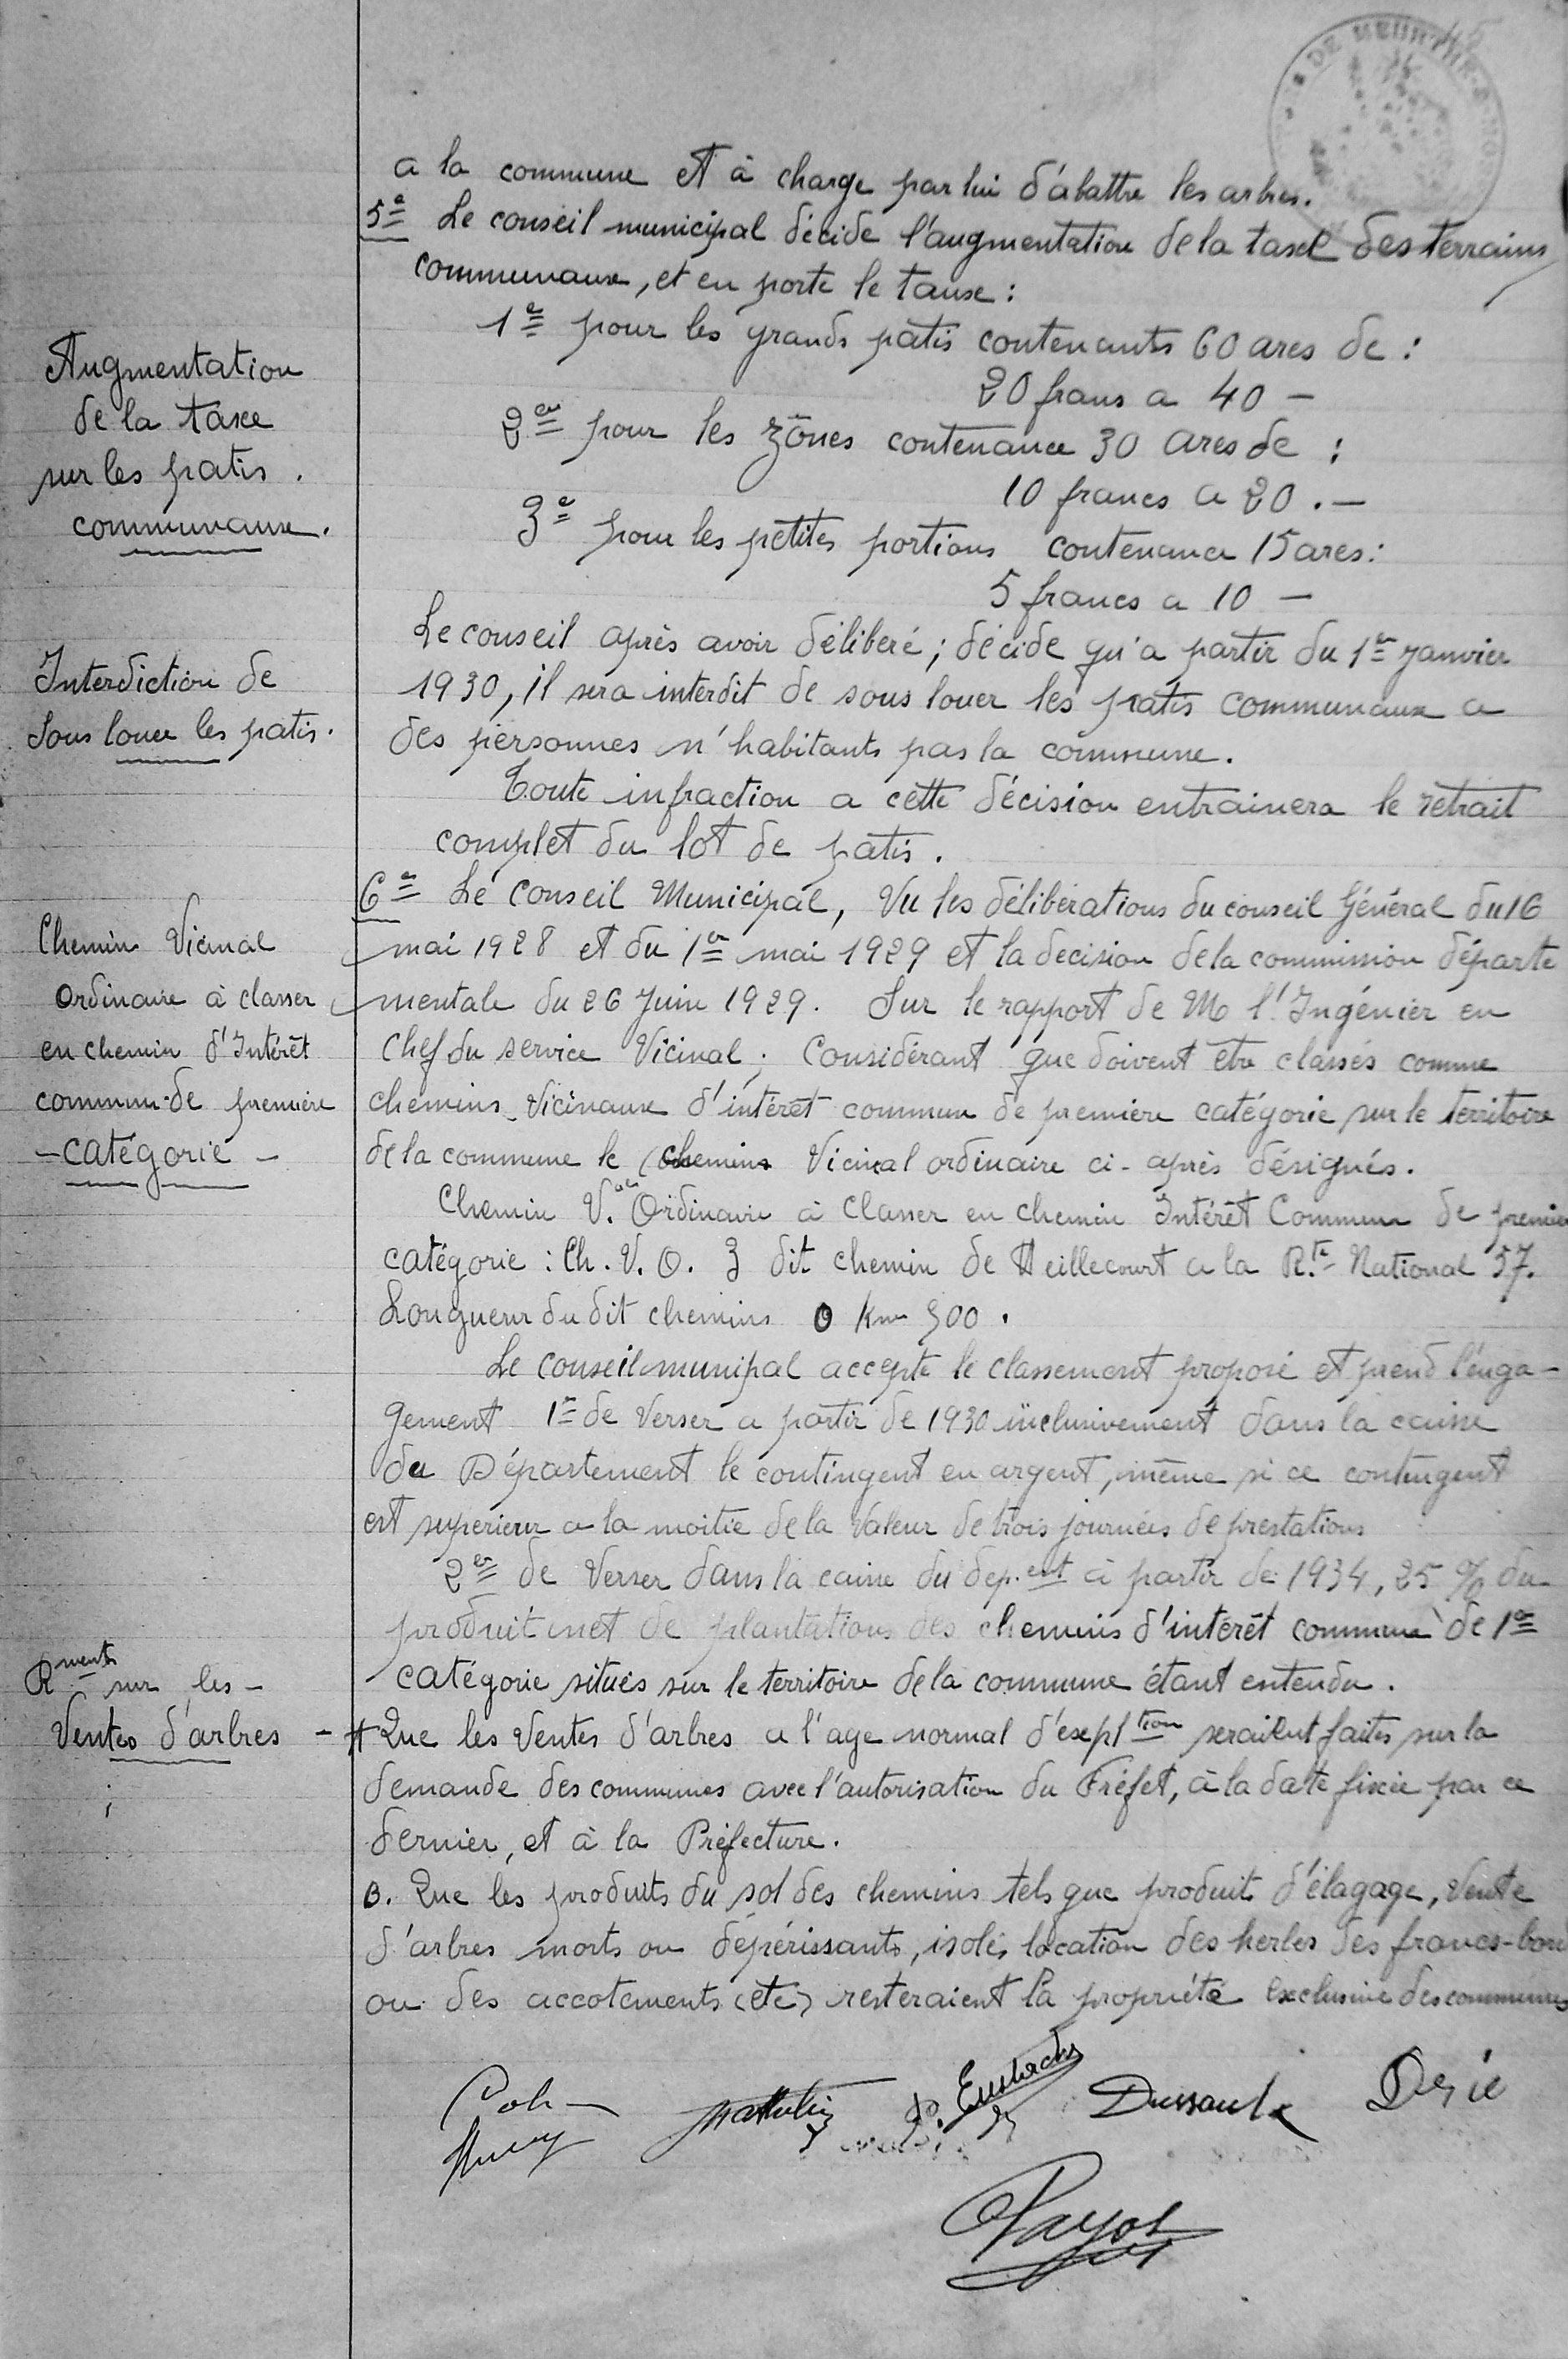 a la commune et à charge par lui d'abattre les arbres.
5e Le conseil municipal décide l'augmentation de la taxe des terrains
communaux, et en porte le taux :
Augmentation
de la taxe
sur les patis.
communaux.
1e pour les grands patis contenants 60 ares de :
20 frans a 40 —
2em pour les zônes contenance 30 ares de :
10 francs a 20 . —
3e pour les petites portions contenance 15 ares :
5 francs a 10 —
Interdiction de
Sous louer les patis.
Le conseil après avoir délibéré ; décide qu'a partir du 1er Janvier
1930, il sera interdit de sous louer les patis communaux a
des personnes n'habitants pas la commune.
Toute infraction a cette décision entrainera le retrait
complet du lot de patis.
Chemin Vicinal
Ordinaire à classer
en chemin d'Intérêt
commun de première
— catégorie —
6e Le Conseil Municipal, Vu les délibérations du conseil Général du 16
mai 1928 et du 1er mai 1929 et la decision de la commission départe
mentale du 26 Juin 1929. Sur le rapport de M l'Ingénier en
Chef du service Vicinal ; Considérant que doivent être classés comme
chemins Vicinaux d'intérêt commun de première catégorie sur le territoire
de la commune le chemins Vicinal ordinaire ci-après désignés.
Chemin V.al Ordinaire à Classer en chemin Intérêt Commun de premier
catégorie : Ch. V. O. 3 dit chemin de Heillecourt a la R.te National 57.
Longueur du dit chemins 0 Km 500 .
Le conseil munipal accepte le classement proposé et prend l'enga-
gement 1er de Verser a partir de 1930 inclusivement dans la caisse
du Département le contingent en argent, même si ce contingent
est superieur a la moitie de la Valeur de trois journées de prestations
2em de Verser dans la caisse du dep.ent à partir de 1934, 25 % du
produit net de plantations des chemins d'intérêt commun de 1er
catégorie situés sur le territoire de la commune étant entendu.
Rments sur les —
Ventes d'arbres —
A Que les Ventes d'arbres a l'age normal d'expltion seraient faites sur la
demande des communes avec l'autorisation du Préfet, à la date fixée par ce
dernier, et à la Préfecture.
B. Que les produits du sol des chemins tels que produit d'élagage, Vente
d'arbres morts ou dépérissants, isolés, location des herbes des francs-bord
ou des accotements (etc) resteraient la propriété exclusive des communes
P. Eustache
Dussault
Payot